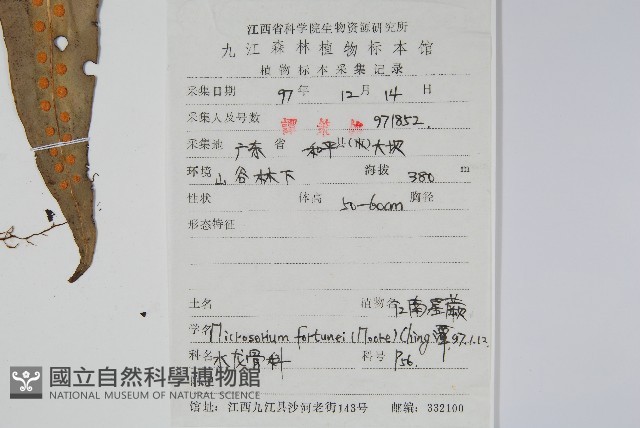 江西省科学院生物资源研究所
九江森林植物标本馆
植物标本采集记录
采集日期 97年 12月 14日
采集人及号数 971852.
采集地 广东 省 和平 县(市) 大坝
环境 山谷林下 海拔 380 m
性状 体高 50-60cm 胸径
形态特征
土名 植物名 江南星蕨
学名 Microsorium fortunei (Moore) Ching 覃 97.1.12.
科名 水龙骨科 科号 P56.
國立自然科學博物館
NATIONAL MUSEUM OF NATURAL SCIENCE
馆址:江西九江县沙河老街143号 邮编:332100